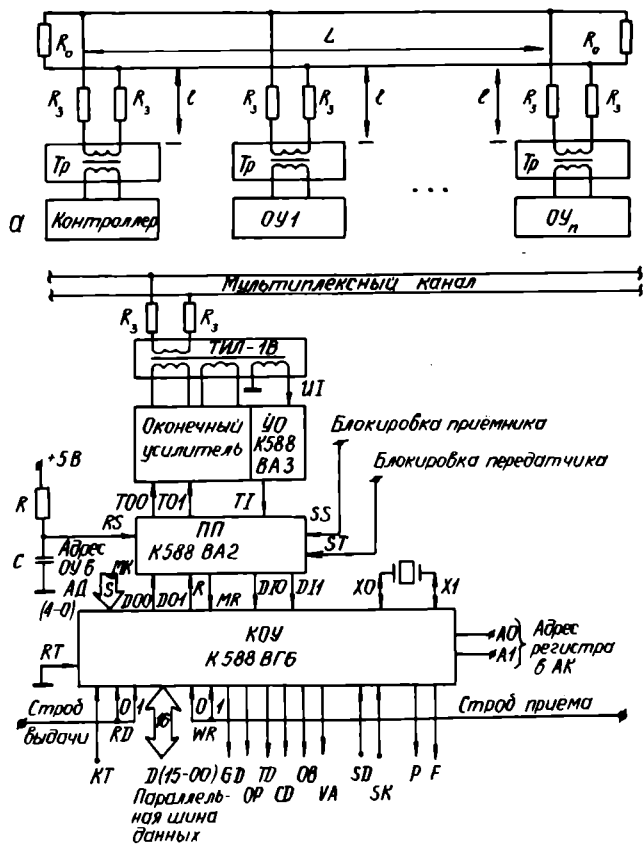 R₀ L R₀
Rз Rз l Rз Rз l l Rз Rз
Тр Тр Тр
...
Контроллер ОУ1 ОУn
а
Мультиплексный канал
Rз Rз
ТИЛ-1В
UI
Оконечный усилитель
УО К588 ВА3
Блокировка приёмника
Блокировка передатчика
+5В
R
C
TO0 TO1 TI
RS
SS
ST
ПП
К588 ВА2
Адрес
ОУ в МК
АД
(4-0)
5
DO0 DO1 R MR DI0 DI1 X0 X1
КОУ
К588 ВГ6
RT
A0
A1
Адрес
регистра
в АК
Строб
выдачи
0 1
RD
16
0 1
WR
Строб приёма
KT D(15-00) GD OP TD CD OB VA SD SK P F
Параллель-
ная шина
данных